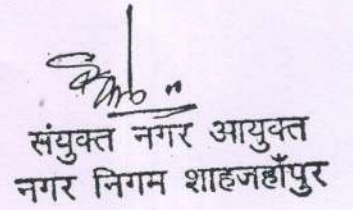 संयुक्त नगर आयुक्त
नगर निगम शाहजहाँपुर